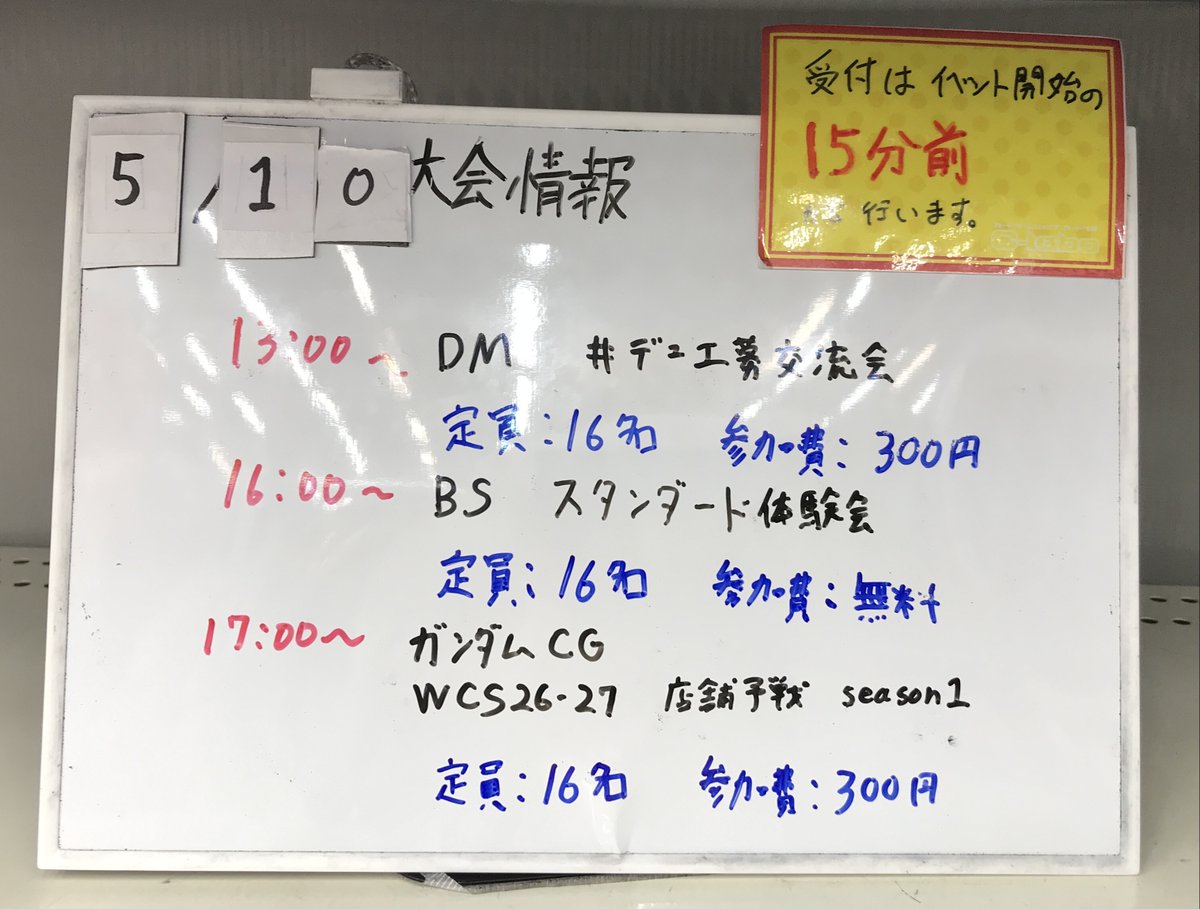 受付は イベント開始の
15分前
行います。
5/10 大会情報
13:00~ DM #デュエ募交流会
定員:16名 参加費:300円
16:00~ BS スタンダード体験会
定員:16名 参加費:無料
17:00~ ガンダムCG
WCS26-27 店舗予戦 season1
定員:16名 参加費:300円